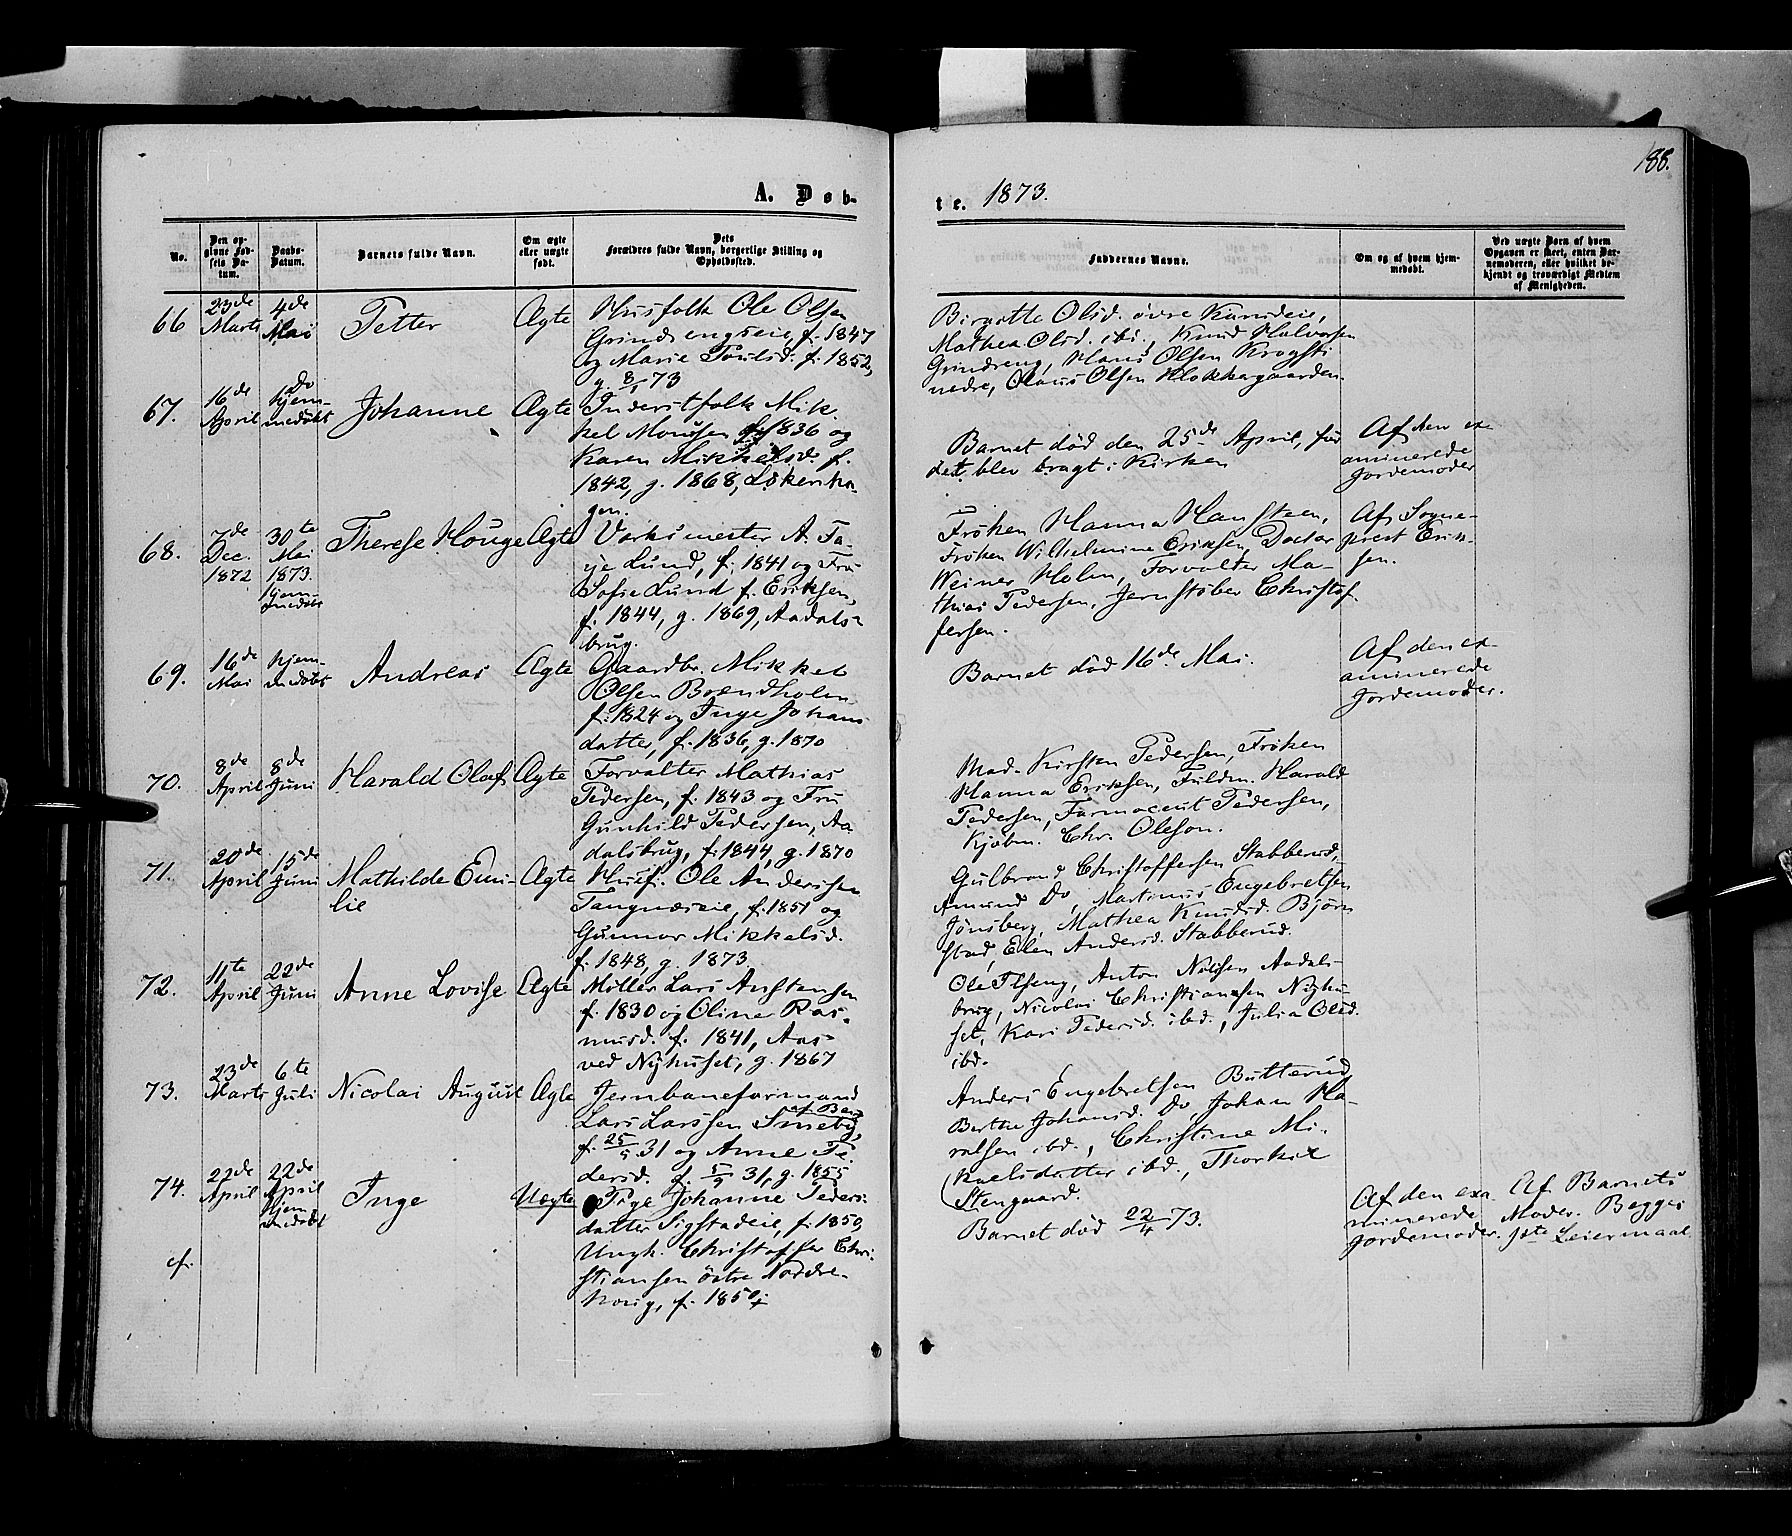 188.
A. Døb-
te. 1873.
No.
Den opgivne Fødselsdatum.
Daabs-Datum.
Barnets fulde Navn.
Om ægte eller uægte født.
Forældres fulde Navn, borgerlige Stilling og Opholdssted.
Faddernes Navne.
Om og af hvem hjemmedøbt.
Ved uægte Børn af hvem Opgaven er skeet, enten Barnemoderen, eller hvilket bekjendt og troværdigt Medlem af Menigheden.
66
23de
Marts
4de
Mai
Petter
Ægte
Husfolk Ole Olsen
Grindsengseie, f. 1847
og Marie Poulsd. f. 1852,
g. 8/1 73
Birgitte Olsd. øvre
Mathea Olsd. ibi., Knud Halvorsen
Grindseng, Hans Olsen Krogsti
nedre, Olaus Olsen Klokkagaarden.
67.
16de
April
Do
hjem-
medøbt
Johanne
Ægte
Inderstfolk Mik-
kel Monsen f. 1836 og
Karen Mikkelsd. f.
1842, g. 1868, Løkenha-
gen.
Barnet død den 25de April, før
det blev bragt i Kirken
Af den ex-
aminerede
Jordemoder
68.
7de
Dec.
1872
30te
Mai
1873.
hjem-
medøbt
Therese Houge
Ægte
Værksmester A. Ta-
je Lund, f. 1841 og Fru
Sofie Lund f. Eriksen,
f. 1844, g. 1869, Aadals-
brug.
Frøken Hanna Hansteen,
Frøken Wilhelmine Eriksen, Doctor
Weiner Holm, Forvalter Ma-
thias Pedersen, Jernstøber Christof-
fersen.
Af Sogne-
prest Erik-
sen.
69.
16de
Mai
hjem-
medøbt
Andreas
Ægte
Gaardbr. Mikkel
Olsen Brændholen
f. 1824 og Inge Johans-
datter, f. 1836, g. 1870
Barnet død 16de Mai.
Af den ex-
aminerede
Jordemoder.
70.
8de
April
8de
Juni
Harald Olaf
Ægte
Forvalter Mathias
Pedersen, f. 1843 og Fru
Gunhild Pedersen, Aa-
dalsbrug, f. 1844, g. 1870
Mad. Kirsten Pedersen, Frøken
Hanna Eriksen, Fuldm. Harald
Pedersen, Farmaceut Pedersen,
Kjøbm. Chr. Oleson.
71.
20de
April
15de
Juni
Mathilde Emi-
lie
Ægte
Husf. Ole Anderssen
Tangnæseie, f. 1851 og
Gunnor Mikkelsd.
f. 1848, g. 1873
Gulbrand Christoffersen Stabberud,
Amund Do, Martinus Engebretsen
Jønsberg, Mathea Knudsd. Bjørn-
stad, Elen Andersd. Stabberud.
72.
11te
April
22de
Juni
Anne Lovise
Ægte
Møller Lars Anstensen
f. 1830 og Oline Ras-
musd. f. 1841, Aas-
ved Nyhuset, g. 1867
Ole Flseng, Anton Nilssen Aadals-
brug, Nicolai Christiansen Nyhu-
set, Kari Pedersd. ibd., Julia Olsd.
ibd.
73.
23de
Marts
6te
Juli
Nicolai August
Ægte
Jernbaneformand
Lars Larssen Smeby,
f. 25/5 31 og Anne Pe-
dersd. f. 5/9 31, g. 1855
Anders Engebretsen Butterud
Berthe Johansd. Do, Johan Ha-
ralsen ibd., Christine Mi-
kaelsdatter ibd., Thorkil
Stengaard.
74.
cf.
22de
April
22de
April
Hjem-
medøbt
Inge
Uægte
Pige Johanne Peders-
datter Sigstadeie, f. 1850,
Ungk. Christoffer Chri-
stiansen østre Nordre-
houg, f. 1850.
Barnet død 22/4 73.
Af den exa-
minerede
Jordemoder.
Af Barnets
Moder. Begges
1ste Leiermaal